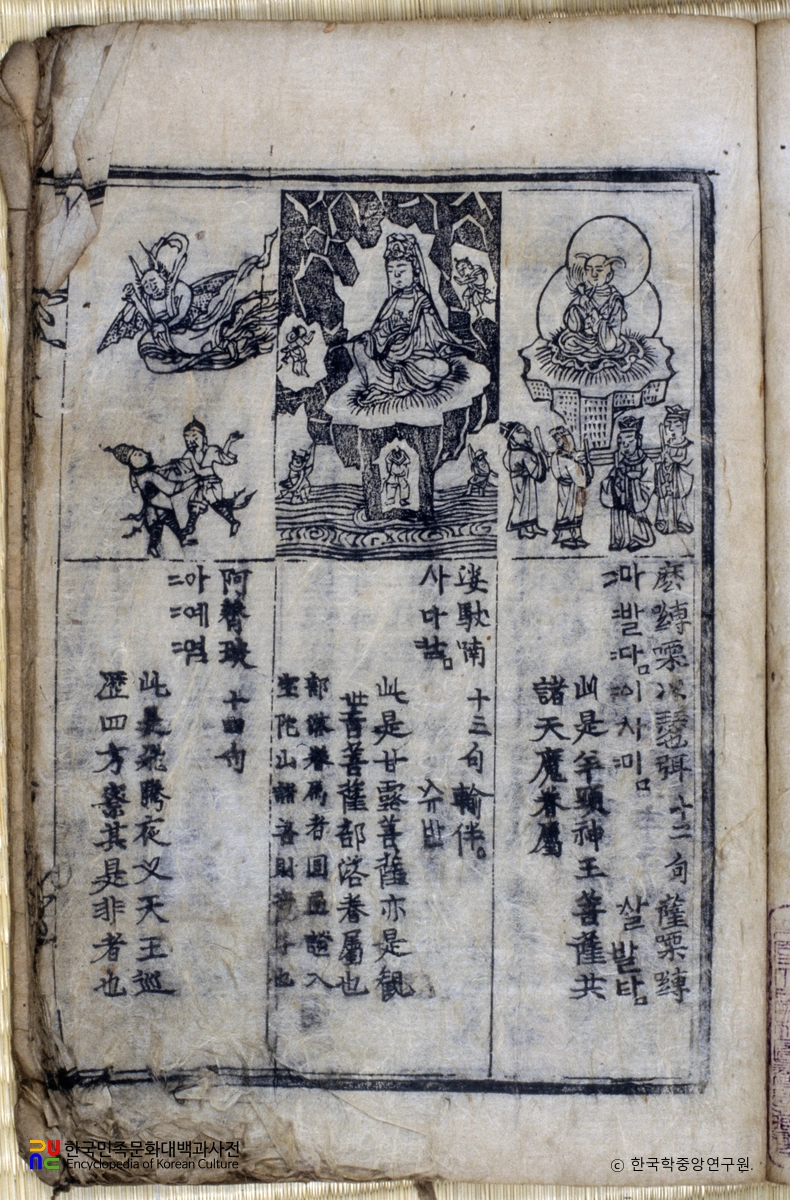 十二句 薩
마발 이사미 살발타
此是羊頭神王菩薩共
諸天魔眷屬
馱喃 十三句 輸伴。
사다남 슈반
此是甘露菩薩亦是觀
世音菩薩部落眷屬也
部落眷屬者圓通證入
陀山諸善財
阿 十四句
아예염
此是飛騰夜叉天王巡
歷四方察其是非者也
한국민족문화대백과사전
Encyclopedia of Korean Culture
ⓒ 한국학중앙연구원.